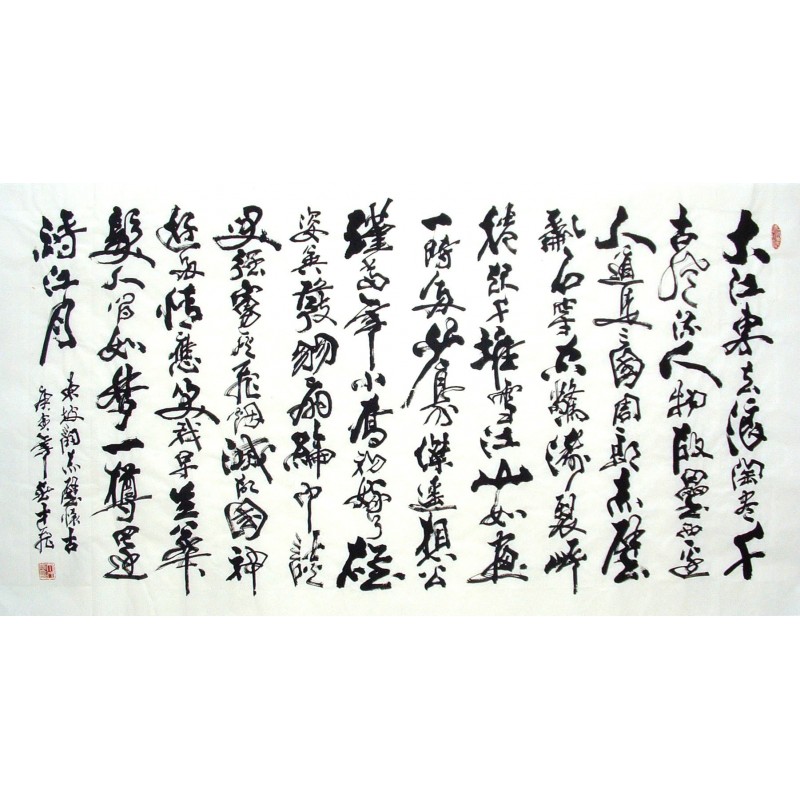 大江東去浪淘尽千
古風流人物故壘西邊
人道是三國周郎赤壁
亂石穿空驚濤裂岸
捲起千堆雪江山如畫
一時多少豪傑遥想公
瑾當年小喬初嫁了雄
姿英發羽扇綸巾談
笑强虜灰飛烟滅故國神
遊多情應笑我早生華
髮人间如夢一樽還
酹江月
東坡詞赤壁懷古
庚寅年